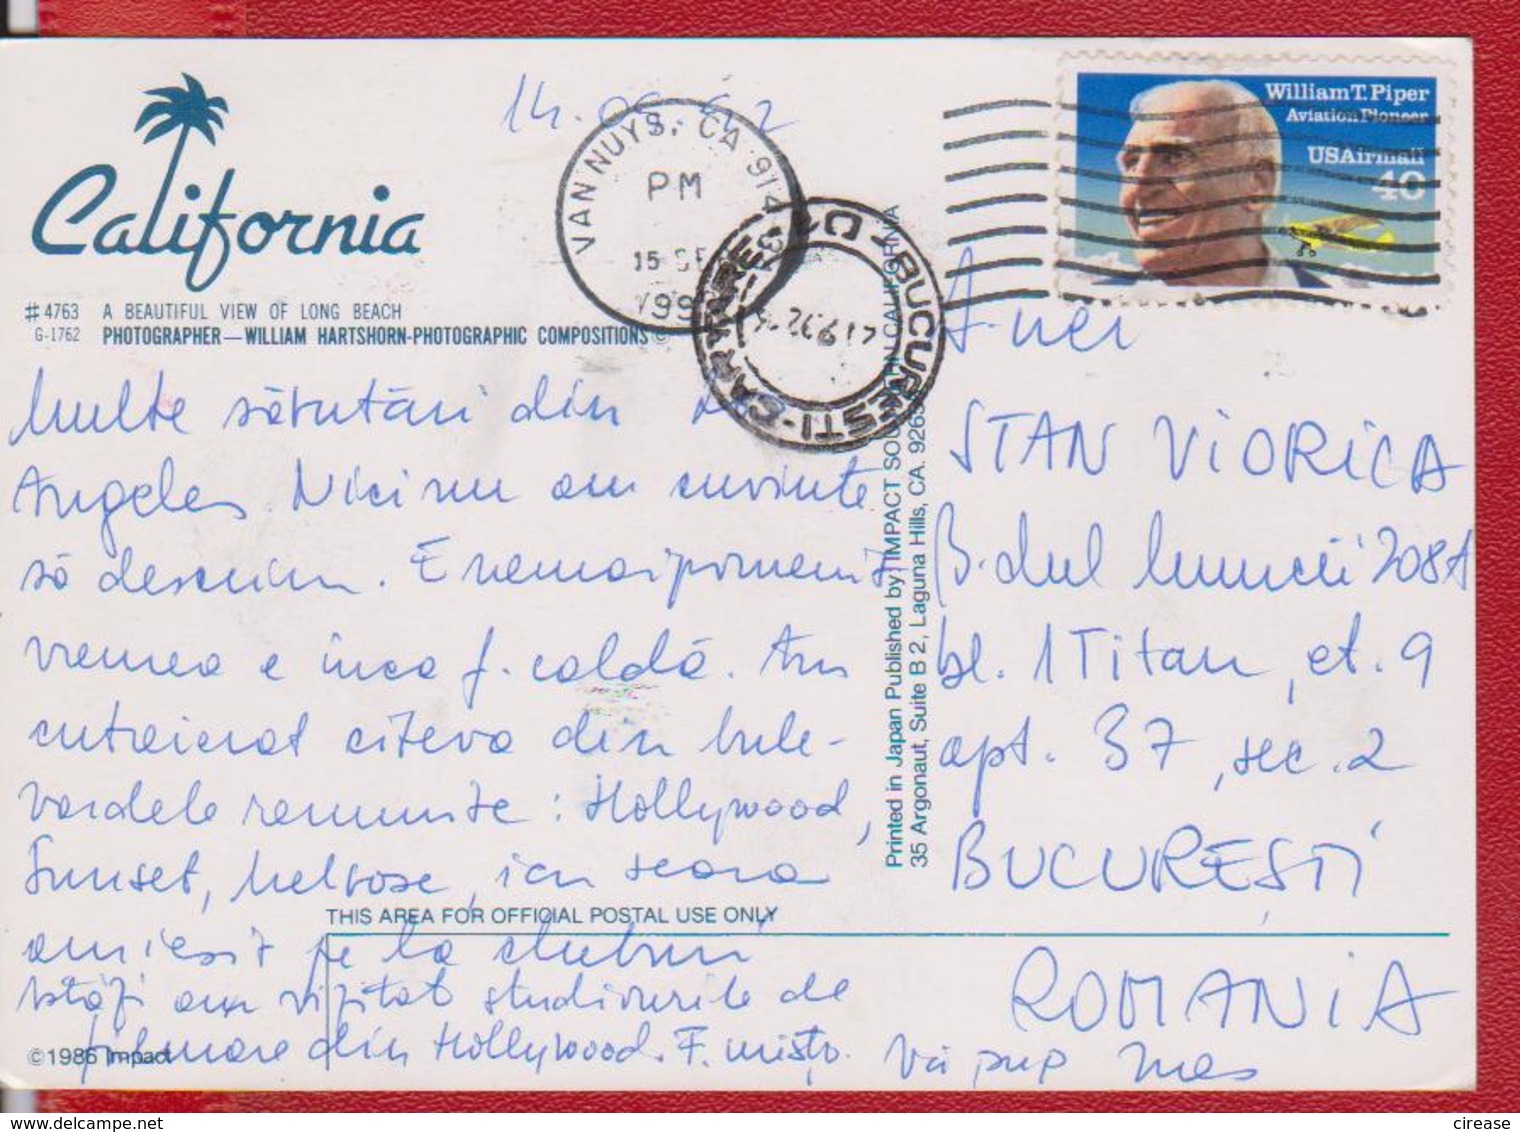 14.09.92
California
#4763 A BEAUTIFUL VIEW OF LONG BEACH
G-1762 PHOTOGRAPHER—WILLIAM HARTSHORN-PHOTOGRAPHIC COMPOSITIONS©
VAN NUYS, CA 914
PM
15 SE
199
BUCURESTI-CARTARE
William T. Piper
Aviation Pioneer
USAirmail
40
Multe sărutări din
Angeles. Nici nu am cuvinte
să descriu. E nemaipomenit
vremea e inca f. caldă. Am
cutreierat citeva din bule-
vardele renumite: Hollywood,
Sunset, Melrose, ieri seara
am iesit pe la cluburi
Astăzi am vizitat studiourile de
din Hollywood. F. mișto. Vă pup
THIS AREA FOR OFFICIAL POSTAL USE ONLY
© 1986 Impact
Printed in Japan Published by IMPACT SOUTHERN CALIFORNIA
35 Argonaut, Suite B 2, Laguna Hills, CA. 9265
STAN VIORICA
B-dul Muncii 208A
bl. 1 Titan, et. 9
apt. 37, sec. 2
BUCUREȘTI
ROMANIA
cirease